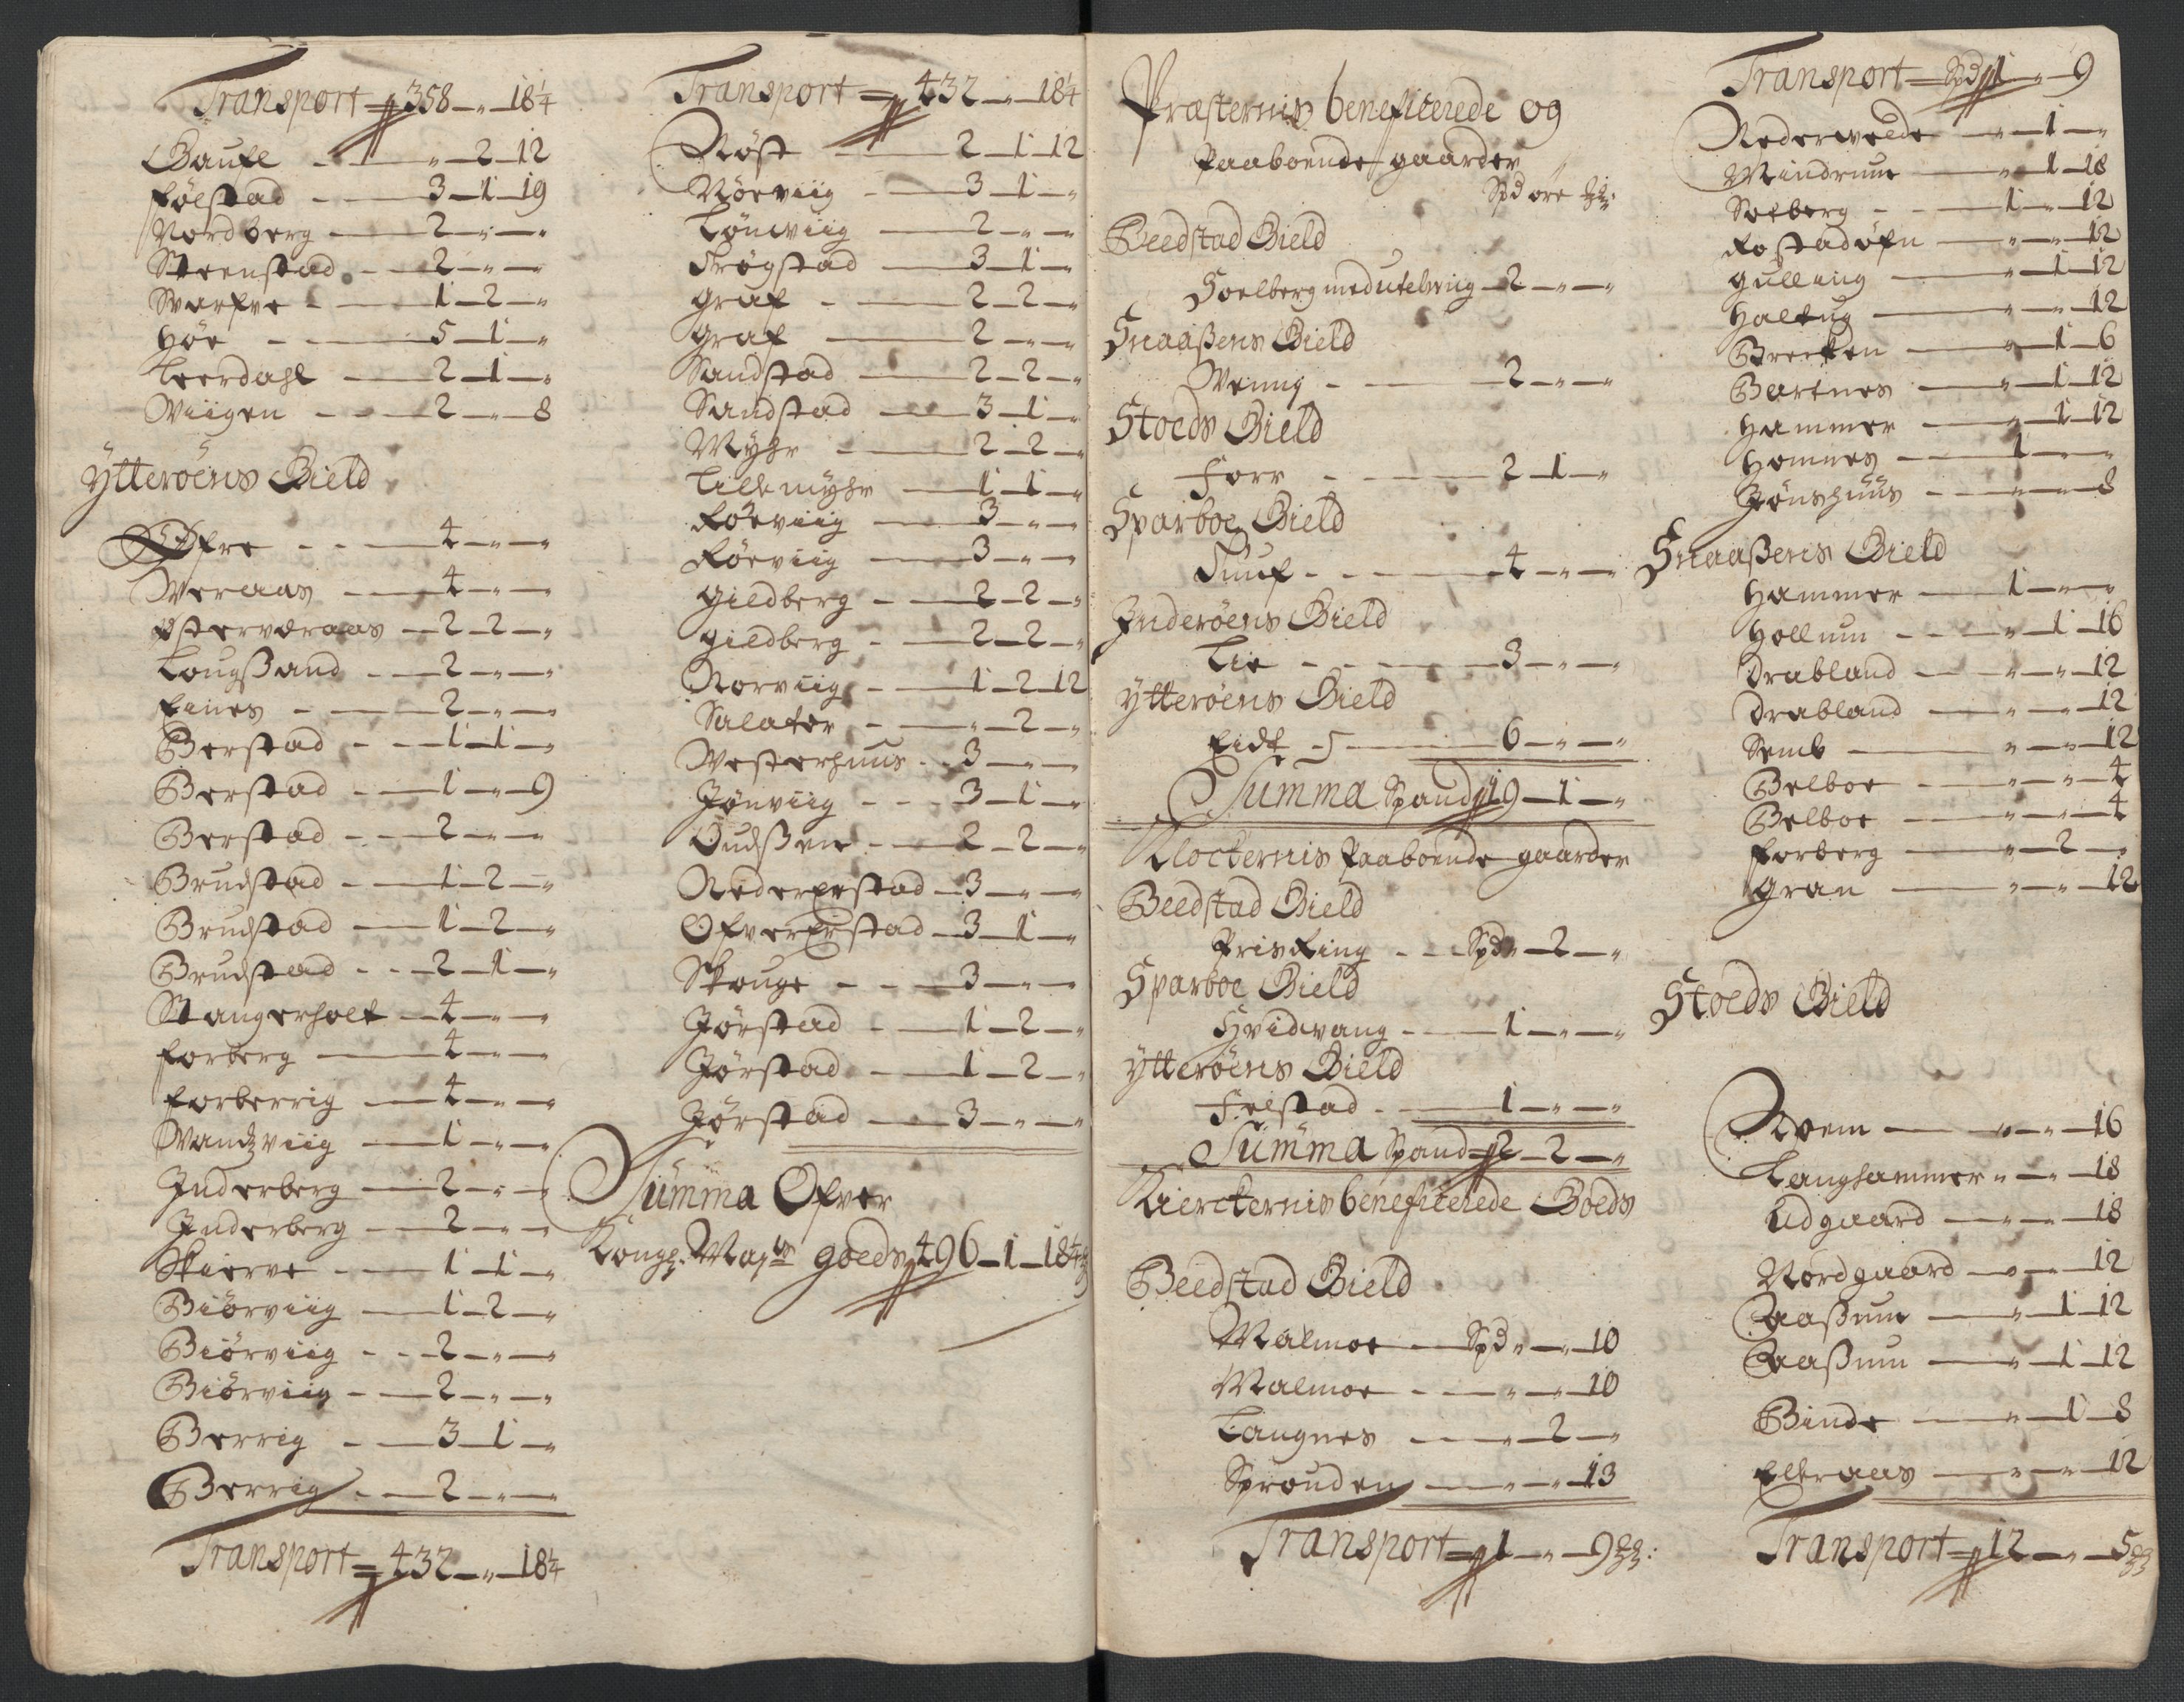 Transport 358 - " - 18¼
Gaufl - " - 2 - 12
Følstad - 3 - 1 - 19
Nordberg - 2 - " - "
Steenstad - 2 - " - "
Svarfve - 1 - 2 - "
Høe - 5 - 1 - "
Leerdahl - 2 - 1 - "
Wiigen - 2 - " - 8
Ytterøens Gield
Øfre - 4 - " - "
Weraas - 4 - " - "
Østerværaas - 2 - 2 - "
Lougsand - 2 - " - "
Eines - 2 - " - "
Berstad - 1 - 1 - "
Berstad - 1 - " - 9
Berstad - 2 - " - "
Brudstad - 1 - 2 - "
Brudstad - 1 - 2 - "
Brudstad - 2 - 1 - "
Stangerholt - 4 - " - "
Forberg - 4 - " - "
Forberrig - 4 - " - "
Wandzviig - 1 - " - "
Inderberg - 2 - " - "
Inderberg - 2 - " - "
Skierve - 1 - 1 - "
Biørviig - 1 - 2 - "
Biørviig - 2 - " - "
Biørviig - 2 - " - "
Berrig - 3 - 1 - "
Berrig - 2 - " - "
Transport 432 - " - 18¼
Transport 432 - " - 18¼
Røst - 2 - 1 - 12
Nørviig - 3 - 1 - "
Lønwiig - 2 - " - "
Frøgstad - 3 - 1 - "
Graf - 2 - 2 - "
Graf - 2 - " - "
Sandstad - 2 - 2 - "
Sandstad - 3 - 1 - "
Myhr - 2 - 2 - "
Lillemyhr - 1 - 1 - "
Rørviig - 3 - " - "
Rørviig - 3 - " - "
Gieldberg - 2 - 2 - "
Gieldberg - 2 - 2 - "
Norviig - 1 - 2 - 12
Salater - " - 2 - "
Westerhuus - 3 - " - "
Jønviig - 3 - 1 - "
Oudßen - 2 - 2 - "
Nedererstad - 3 - " - "
Ofvererstad - 3 - 1 - "
Skouge - 3 - " - "
Jørstad - 1 - 2 - "
Jørstad - 1 - 2 - "
Jørstad - 3 - " - "
Summa Ofver
Kongl. Mayts goeds 496 - 1 - 18¼
Præsternis beneficerede og
Paaboende gaarder
Spd øre
Beedstad Gield
Soelberg med utelwiig - 2 - " - "
Snaaßens Gield
Wenng - 2 - " - "
Stoeds Gield
Forr - 2 - 1 - "
Sparboe Gield
Tuuf - 4 - " - "
Inderøens Gield
Lie - 3 - " - "
Ytterøens Gield
Eidt - 6 - " - "
Summa Spand 19 - 1 - "
Klockernis Paaboende gaarder
Beedstad Gield
Prisking - Spd " - 2 - "
Sparboe Gield
Hvidvang - 1 - " - "
Ytterøens Gield
Felstad - 1 - " - "
Summa Spand 2 - 2 - "
Kierckernis beneficerede Goeds
Beedstad Gield
Malmoe - Spd " - " - 10
Malmoe - " - " - 10
Langnes - " - 2 - "
Sprouden - " - " - 13
Transport 1 - " - 9
Transport Spd 1 - " - 9
Nederwelde - " - 1 - "
Mindrum - " - 1 - 18
Solberg - 1 - " - 12
Rostadøfn - " - " - 12
Gulling - " - 1 - 12
Haltug - " - " - 12
Brecken - " - 1 - 6
Bartnes - " - 1 - 12
Hammer - " - 1 - 12
Homnes - 1 - " - "
Jønshuus - " - " - 8
Snaaßens Gield
Hammer - 1 - " - "
Hollum - " - 1 - 16
Drabland - " - " - 12
Drabland - " - " - 12
Semb - " - " - 12
Belboe - " - " - 4
Belboe - " - " - 4
Forberg - " - 2 - "
Gran - " - " - 12
Stoeds Gield
Qvem - " - " - 16
Langhammer - " - " - 18
Udgaard - " - " - 18
Nordgaard - " - " - 12
Aaßum - " - 1 - 12
Aaßum - " - 1 - 12
Binde - " - 1 - 8
Elleraas - " - " - 12
Transport 12 - " - 5